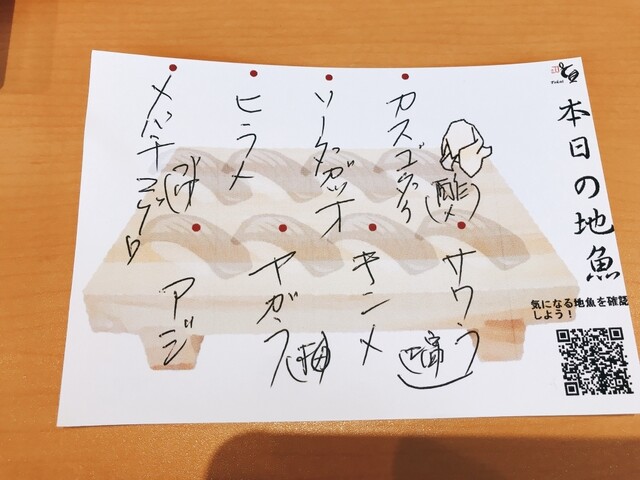 本日の地魚
気になる地魚を確認
しよう!
カスゴダイ
(酢〆)
ソーダガツオ
ヒラメ
メバチマグロ
サワラ
キンメ
ヤガラ
アジ